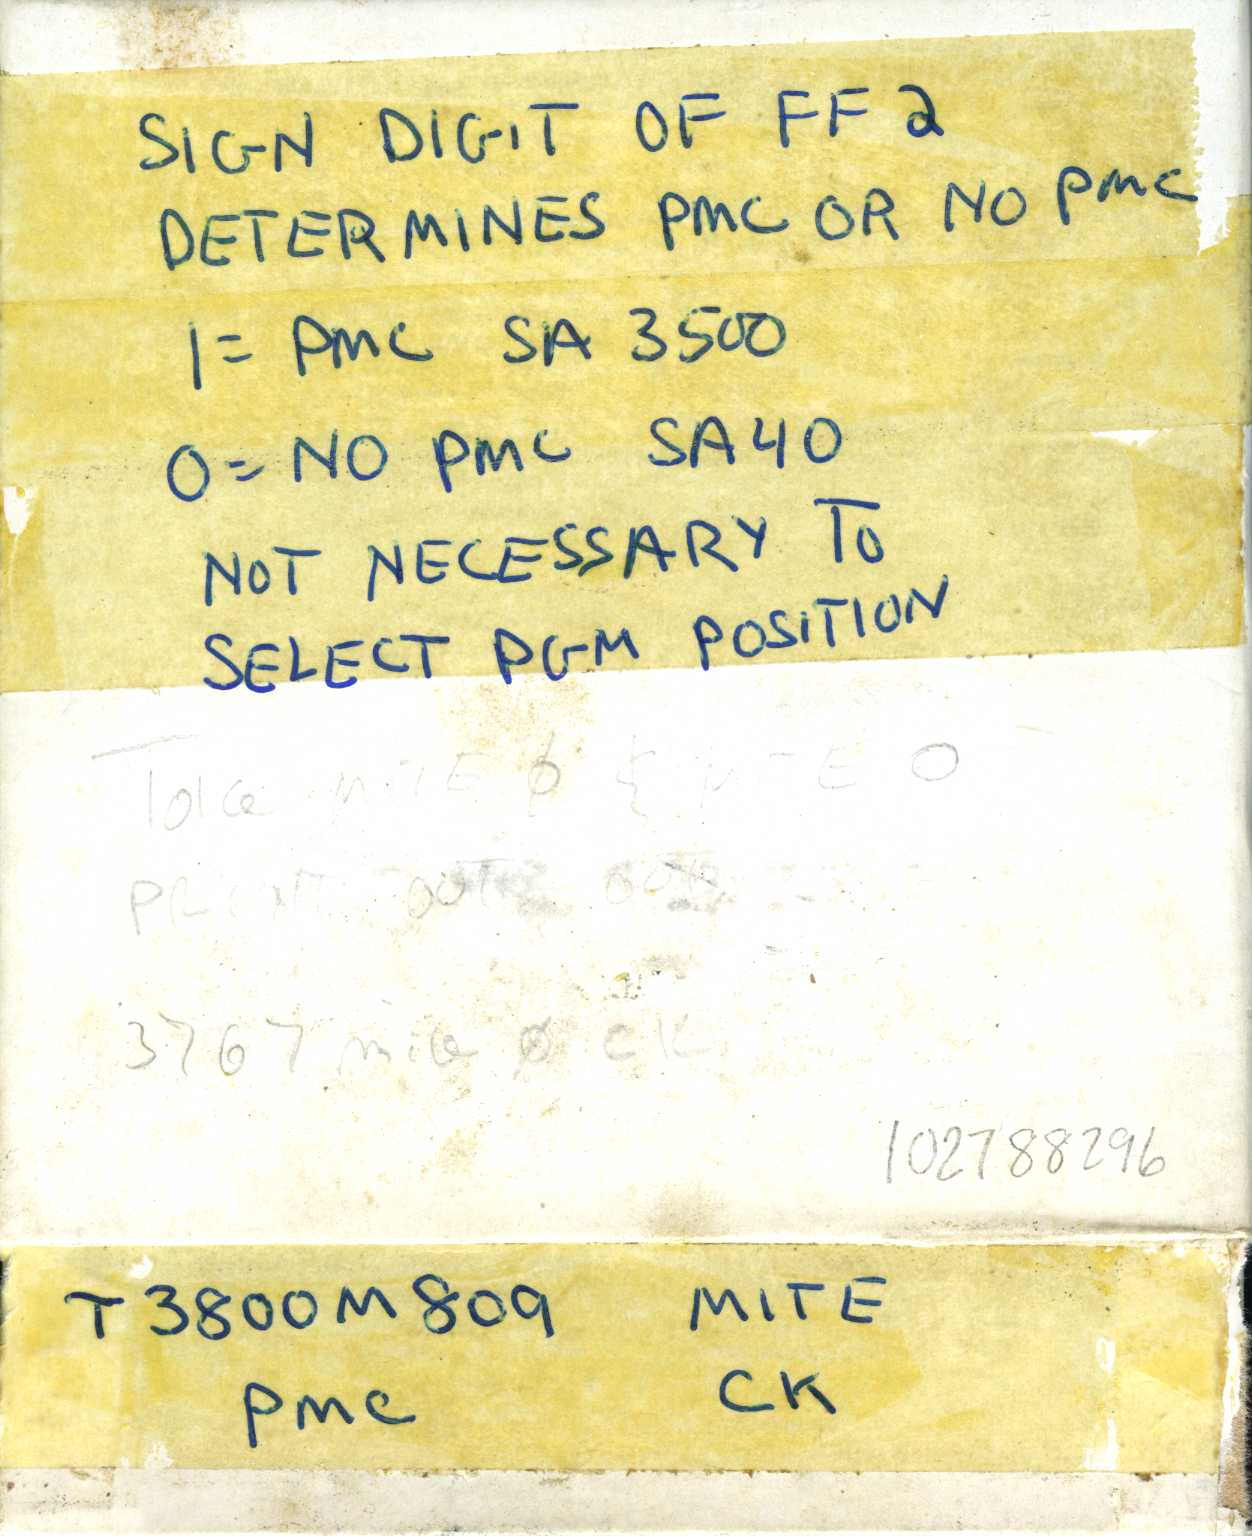 SIGN DIGIT OF FF2
DETERMINES PMC OR NO PMC
1= PMC SA 3500
0= NO PMC SA40
NOT NECESSARY TO
SELECT PGM POSITION
MITE 0 MITE 0
PRINT
3767 mite Ø CK
102788296
T3800M809 MITE
PMC CK